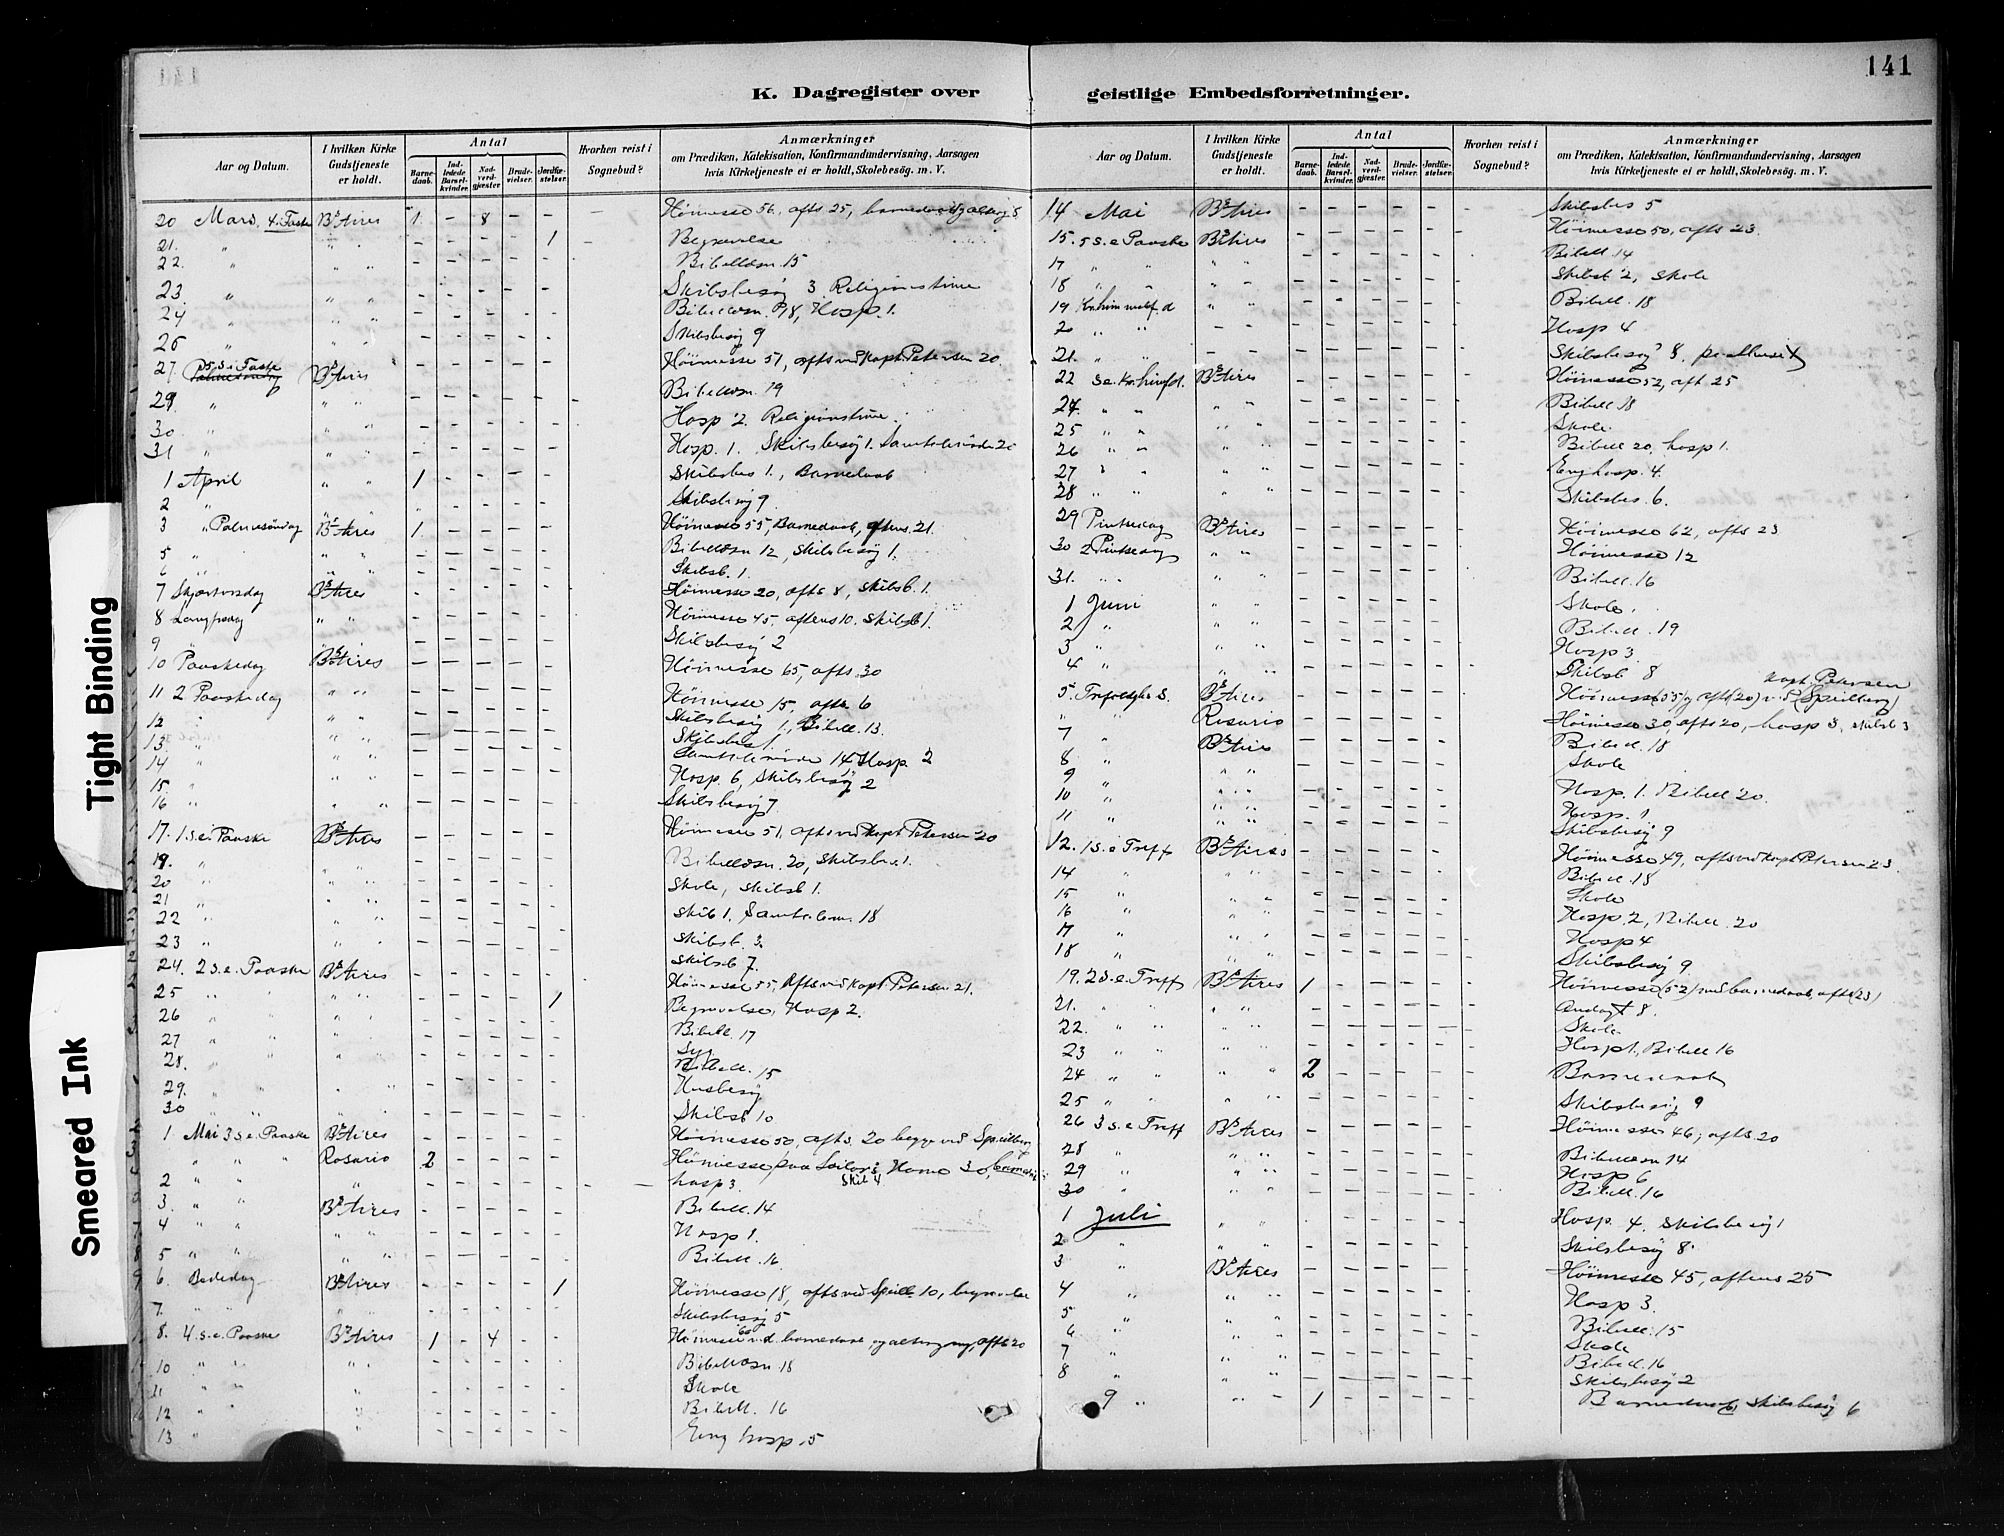 141
K. Dagregister over geistlige Embedsforretninger.
Aar og Datum. I hvilken Kirke Gudstjeneste er holdt. Antal Barnedaab. Indledede Barselkvinder. Nadverdgjæster. Brudevielser. Jordfæstelser. Hvorhen reist i Sognebud? Anmærkninger om Prædiken, Katekisation, Konfirmandundervisning, Aarsagen hvis Kirketjeneste ei er holdt, Skolebesøg. m. V.
20 Mars, 4. i Faste Bs Aires 1 - 8 - - - Hôimesse 56, afts 25,
21. " " " - - - - 1 - Begravelse
22. " " " - - - - - Bibellæsn. 15
23. " " " - - - - - Skibsbesøg 3 Religionstime
24 " " " - - - - - Bibellæsn. 18, Hosp. 1.
26 " " " - - - - - Skibsbesøg 9
27. 5 s. i Faste Bs Aires - - - - - Hôimesse 51, afts ved Kapt. Petersen 20.
29. " " " - - - - - Bibellæsn. 19
30. " " " - - - - - Hosp 2. Religionstime
31 " " " - - - - - Hosp. 1. Skibsbesøg 1. Samtalemøde 20
1 April " " 1 - - - - Skibsbes 1., Barnedaab
2 " " " - - - - - Skibsbesøg 9
3 " Palmesøndag Bs Aires 1 - - - - Hôimesse 55, Barnedaab, aftens. 21.
5 " " " - - - - - Bibellæsn 12, Skibsbesøg 1.
6 " " " - - - - - Skibsb. 1.
7 Skjærtorsdag Bs Aires - - - - - Hôimesse 20, afts 8, Skibsb. 1.
8 Langfredag " " - - - - - Hôimesse 45, aftens 10, Skibsb 1.
9 " - - - - - Skibsbesøg 2
10 Paaskedag Bs Aires - - - - - Hôimesse 65, afts. 30
11 2 Paaskedag " " - - - - - Hôimesse 15, aften 6
12 " - - - - - Skibsbesøg 1, Bibell. 13.
13 " - - - - - Skibsbes 1.
14 " - - - - - Samtalemøde 14 Hosp. 2
15 " - - - - - Hosp. 6, Skibsbesøg 2
16 " " " - - - - - Skibsbesøg 7
17. 1. s. e. Paaske Bs Aires - - - - - Hôimesse 51, afts ved Kapt. Petersen 20
19. " " " - - - - - Bibellæsn. 20, Skibsbes. 1.
20 " " " - - - - - Skole, Skibsb 1.
21 " " " - - - - -
22 " " " - - - - - Skib 1. Samtalem. 18
23 " " " - - - - - Skibsb. 3.
24. 2 s. e. Paaske Bs Aires - - - - - Skibsb 7.
Hôimesse 55, Afts ved Kapt. Petersen 21.
25 " " " " - - - - 1 Begravelse, Hosp 2.
26 " " " " - - - - - Bibell. 17
27 " " " " - - - - -
28. " " " " - - - - - Bibell. 15
29. " " " " - - - - - Husbesøg
30 " " " " - - - - - Skibsb 10
1 Mai 3 s. e. Paaske Bs Aires - - - - - Hôimesse 50, afts. 20 begge ved Speilberg
" " " Rosario 2 - - - - Hôimesse paa Sailors Home 30,
2 " " " - - - - - hosp 3. Skib 4
3. " " Bs Aires - - - - - Bibell. 14
4 " " " " - - - - - Hosp 1.
5 " " " " - - - - - Bibell. 16
6. Bededag Bs Aires - - - - 1 Hôimesse 18, afts ved Speilb 10, begravelse
7. " " " " - - - - - Skibsbesøg 5
8. 4. s. e. Paaske Bs Aires 1 - 4 - - Hôimesse 60 ved. barnedaab, og altergang, aft 20
10 " " " " - - - - - Bibellæsn 18
11 " " " - - - - - Skole
12 " " " - - - - - Bibell. 16
13 " " - - - - - Eng hosp 5
Aar og Datum. I hvilken Kirke Gudstjeneste er holdt. Antal Barnedaab. Indledede Barselkvinder. Nadverdgjæster. Brudevielser. Jordfæstelser. Hvorhen reist i Sognebud? Anmærkninger om Prædiken, Katekisation, Konfirmandundervisning, Aarsagen hvis Kirketjeneste ei er holdt, Skolebesøg. m. V.
14 Mai Bs Aires - - - - - Skibsbes 5
15. 5 s. e Paaske Bs Aires - - - - - Hôimesse 50, afts 23.
17 " " " " - - - - - Bibell. 14
18 " " " " - - - - - Skibsb 2, Skole
19 Kr. himmelf. d " " - - - - - Bibell. 18
20 " " " " - - - - - Hosp 4
21. " " - - - - - Skibsbesøg 8,
22 s. e. Kr. himfd. Bs Aires - - - - - Hôimesse 52, aft 25
24. " " " " - - - - - Bibell 18
25 " " " " - - - - - Skole.
26 " " " " - - - - - Bibell 20, hosp 1.
27 " " " " - - - - - Eng hosp. 4.
28 " " " " - - - - - Skibsbes 6.
29 Pintsedag Bs Aires - - - - - Hôimesse 62, afts 23
30 2 Pintsedag " " - - - - - Hôimesse 12
31. " " " " - - - - - Bibell. 16
1 Juni " " - - - - - Skole.
2 " " " - - - - - Bibell. 19
3 " " " - - - - - Hosp 3.
4 " " " - - - - - Skibsb 8
5. Trefoldghs S. Bs Aires - - - - - Hôimesse (55) og afts (20) v. Kapt. Petersen (Speilberg)
" " Rosario - - - - - Hôimesse 30, afts 20, hosp 3, skibsb 3
7 " Bs Aires - - - - - Bibell. 18
8 " " " - - - - - Skole
9 " " " - - - - - Hosp. 1. Bibell 20.
10 " " " - - - - - Hosp. 1
11 " " " - - - - - Skibsbesøg 9
12. 1 s. e Treff Bs Aires - - - - - Hôimesse 49, afts ved Kapt. Petersen 23.
14 " " " - - - - - Bibell. 18
15 " " " - - - - - Skole
16 " " " - - - - - Hosp. 2, Bibell. 20
17 " " " - - - - - Hosp 4
18 " " " - - - - - Skibsbesøg 9
19. 2 s. e. Treff Bs Aires 1 - - - - Hôimesse (52) med barnedaab, afts (23)
21. " " " " - - - - - Andagt 8.
22. " " " " - - - - - Skole.
23 " " " " - - - - - Hosp 1, Bibell 16
24 " " " " 2 - - - - Barnedaab
25 " " " " - - - - - Skibsbesøg 9
26 3 s. e Treff Bs Aires - - - - - Hôimesse 46, afts 20
28 " " " - - - - - Bibellæsn 14
29 " " " - - - - - Hosp 6
30 " " " - - - - - Bibell. 16
1 Juli " " - - - - - Hosp. 4. Skibsbesøg 1
2 " " " - - - - - Skibsbesøg 8.
3 " Bs Aires - - - - - Hôimesse 45, aftens 25
4 " " " - - - - - Hosp 3.
5 " " " - - - - - Bibell. 15
6 " " " - - - - - Skole
7 " " " - - - - - Bibell. 16
8 " " " - - - - - Skibsbesøg 2
9 " " " 1 - - - - Barnedaab, Skibsbesøg 6
Tight Binding
Smeared Ink